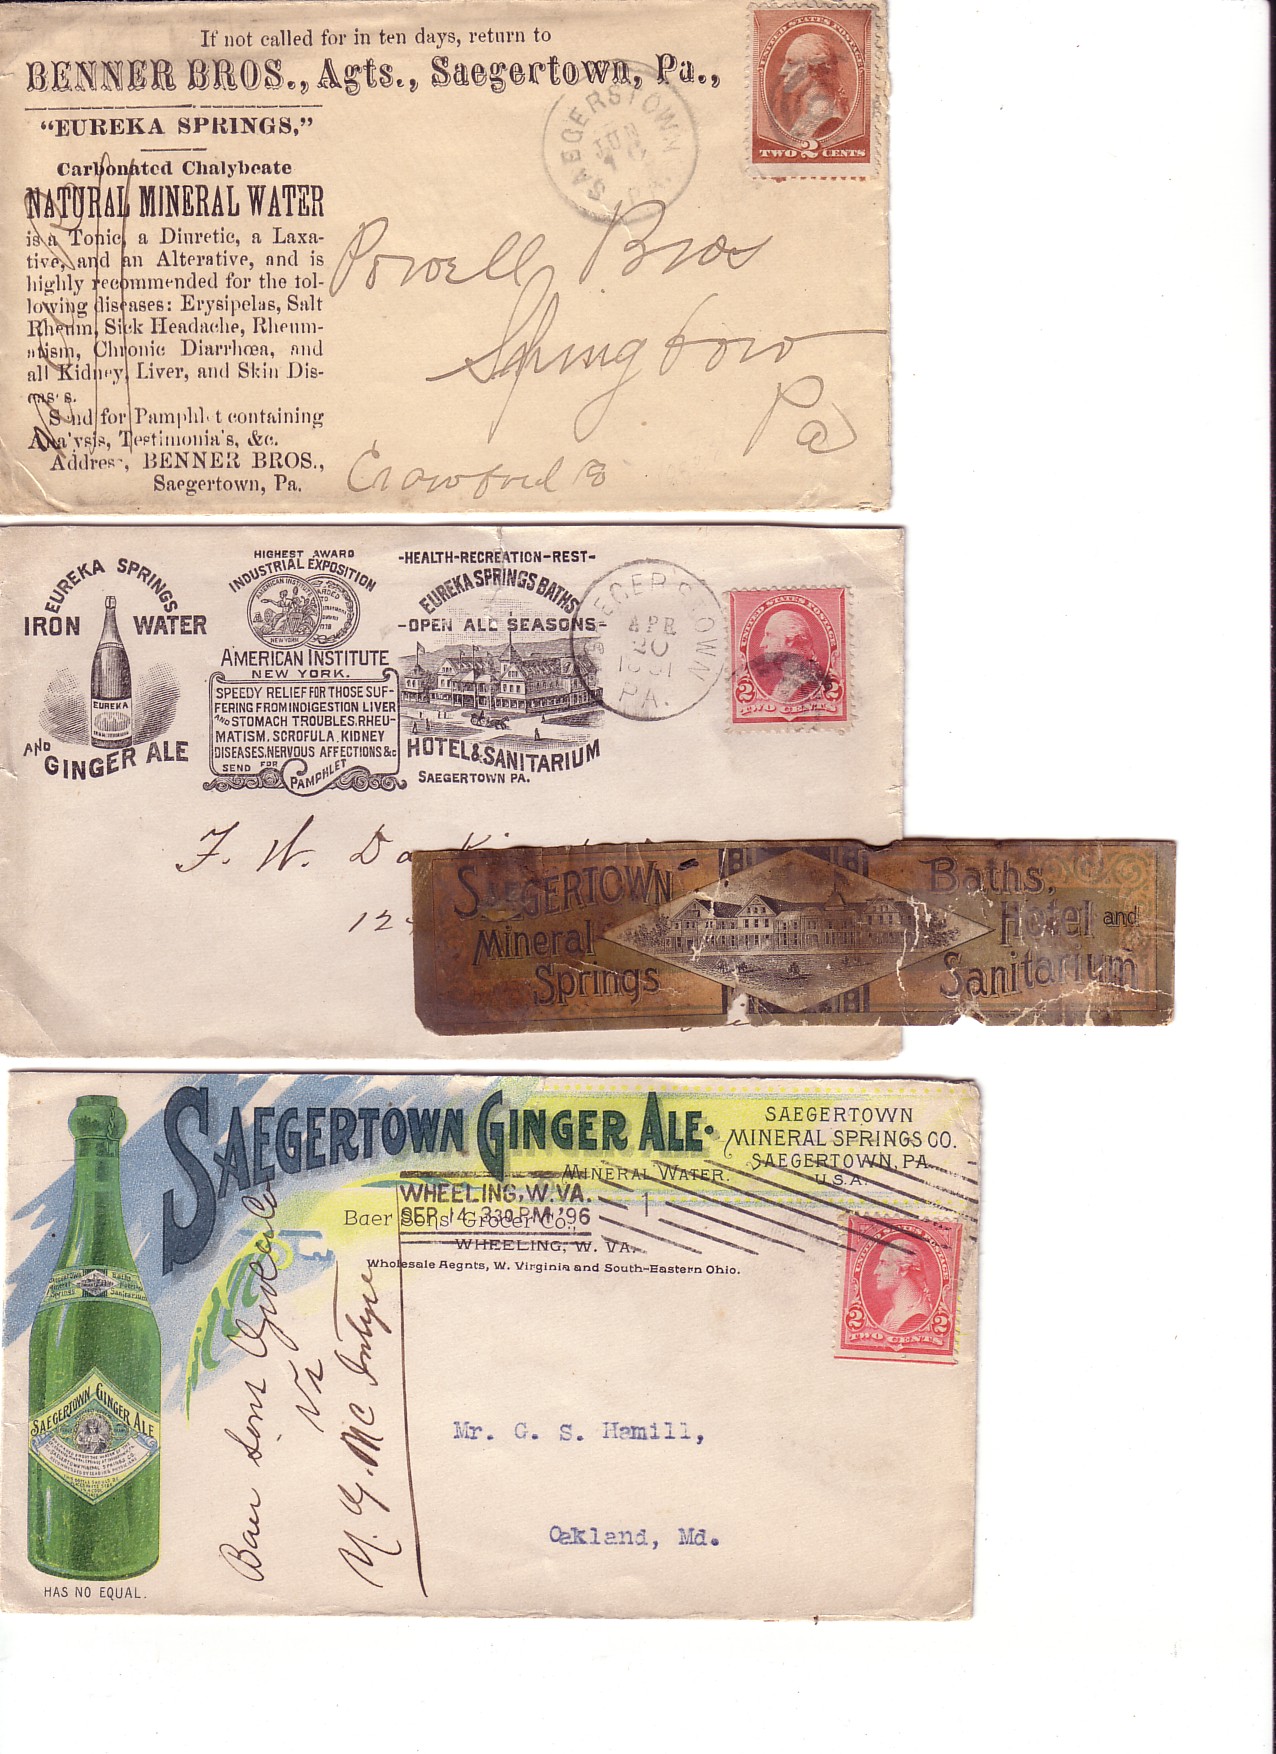 If not called for in ten days, return to
BENNER BROS., Agts., Saegertown, Pa.,
"EUREKA SPRINGS,"
Carbonated Chalybeate
NATURAL MINERAL WATER
is a Tonic, a Diuretic, a Laxa-
tive, and an Alterative, and is
highly recommended for the fol-
lowing diseases: Erysipelas, Salt
Rheum, Sick Headache, Rheum-
atism, Chronic Diarrhœa, and
all Kidney, Liver, and Skin Dis-
eas s.
Send for Pamphl t containing
Ana'ysis, Testimonia's, &c.
Address, BENNER BROS.,
Saegertown, Pa.
SAEGERSTOWN
JUN
PA.
UNITED STATES POSTAGE
TWO 2 CENTS
Powell Bros
Springboro
Pa
Crawford
EUREKA SPRINGS
IRON WATER
EUREKA
AND
GINGER ALE
HIGHEST AWARD
INDUSTRIAL EXPOSITION
AMERICAN INSTITUTE
NEW YORK
AMERICAN INSTITUTE
NEW YORK.
SPEEDY RELIEF FOR THOSE SUF-
FERING FROM INDIGESTION LIVER
AND STOMACH TROUBLES, RHEU-
MATISM, SCROFULA, KIDNEY
DISEASES, NERVOUS AFFECTIONS &c
SEND FOR
PAMPHLET
-HEALTH-RECREATION-REST-
EUREKA SPRINGS BATHS
-OPEN ALL SEASONS-
HOTEL & SANITARIUM
SAEGERTOWN PA.
EGERSTOWN
APR
20
PA.
UNITED STATES POSTAGE
2 2
TWO CENTS
F. W. Da
12
SAEGERTOWN
Mineral
Springs
Baths,
Hotel and
Sanitarium
SAEGERTOWN GINGER ALE.
MINERAL WATER.
SAEGERTOWN
MINERAL SPRINGS CO.
SAEGERTOWN, PA.
U.S.A.
WHEELING, W.VA.
SEP 14 330 PM '96
1
Baer Sons Grocer Co.,
WHEELING, W. VA.
Wholesale Aegnts, W. Virginia and South-Eastern Ohio.
2 2
TWO CENTS
Baer Sons Grocer Co
Vs
McIntyre
Saegertown Mineral Springs
Baths Hotel and Sanitarium
SAEGERTOWN GINGER ALE
HAS NO EQUAL.
Mr. G. S. Hamill,
Oakland, Md.